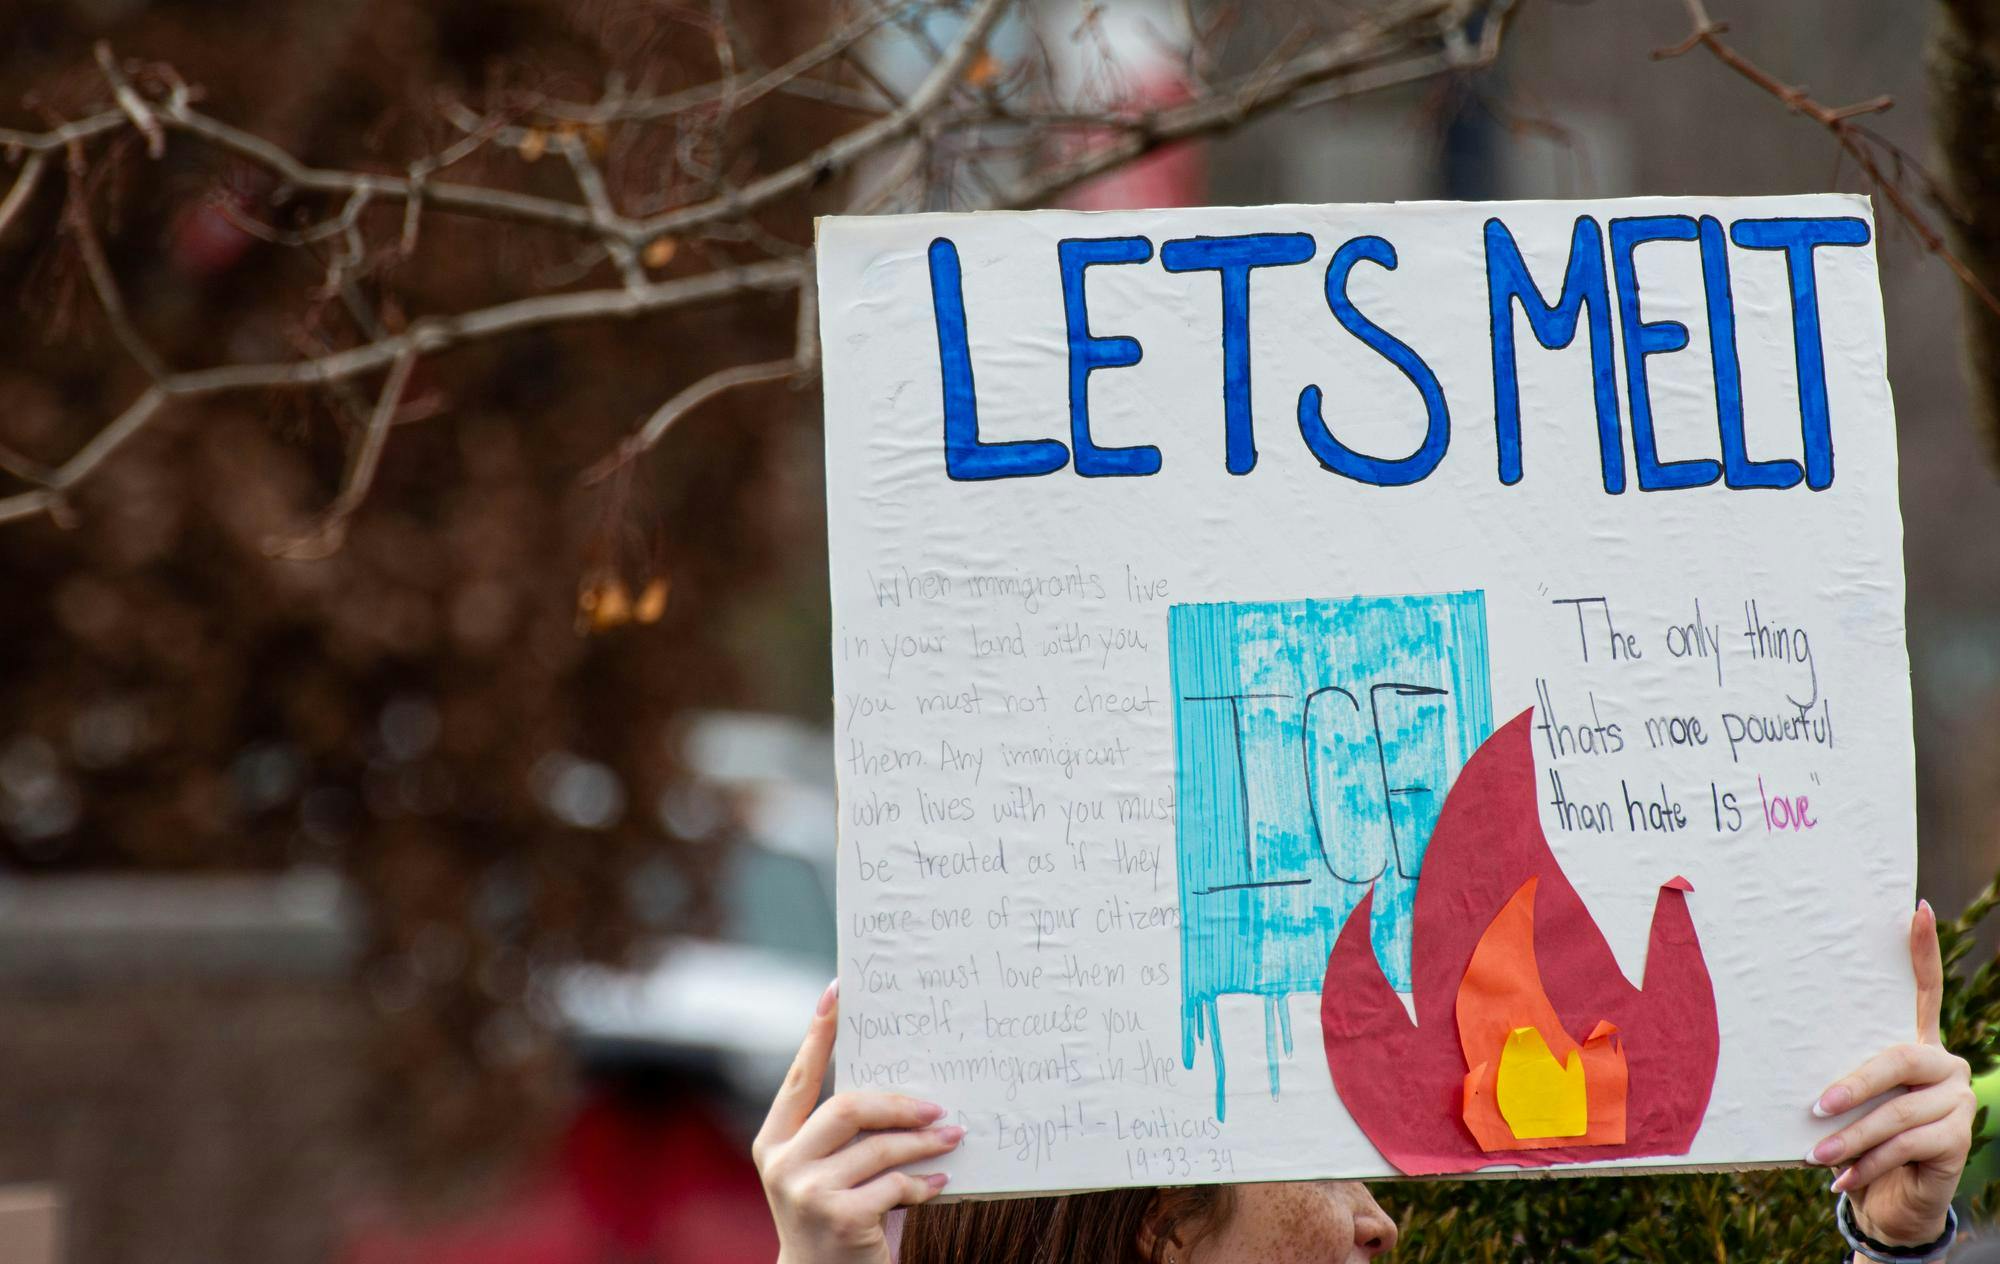 LETS MELT
When immigrants live
in your land with you,
you must not cheat
them. Any immigrant
who lives with you must
be treated as if they
were one of your citizens
You must love them as
yourself, because you
were immigrants in the
Egypt! - Leviticus
19:33-34
ICE
"The only thing
thats more powerful
than hate is love"